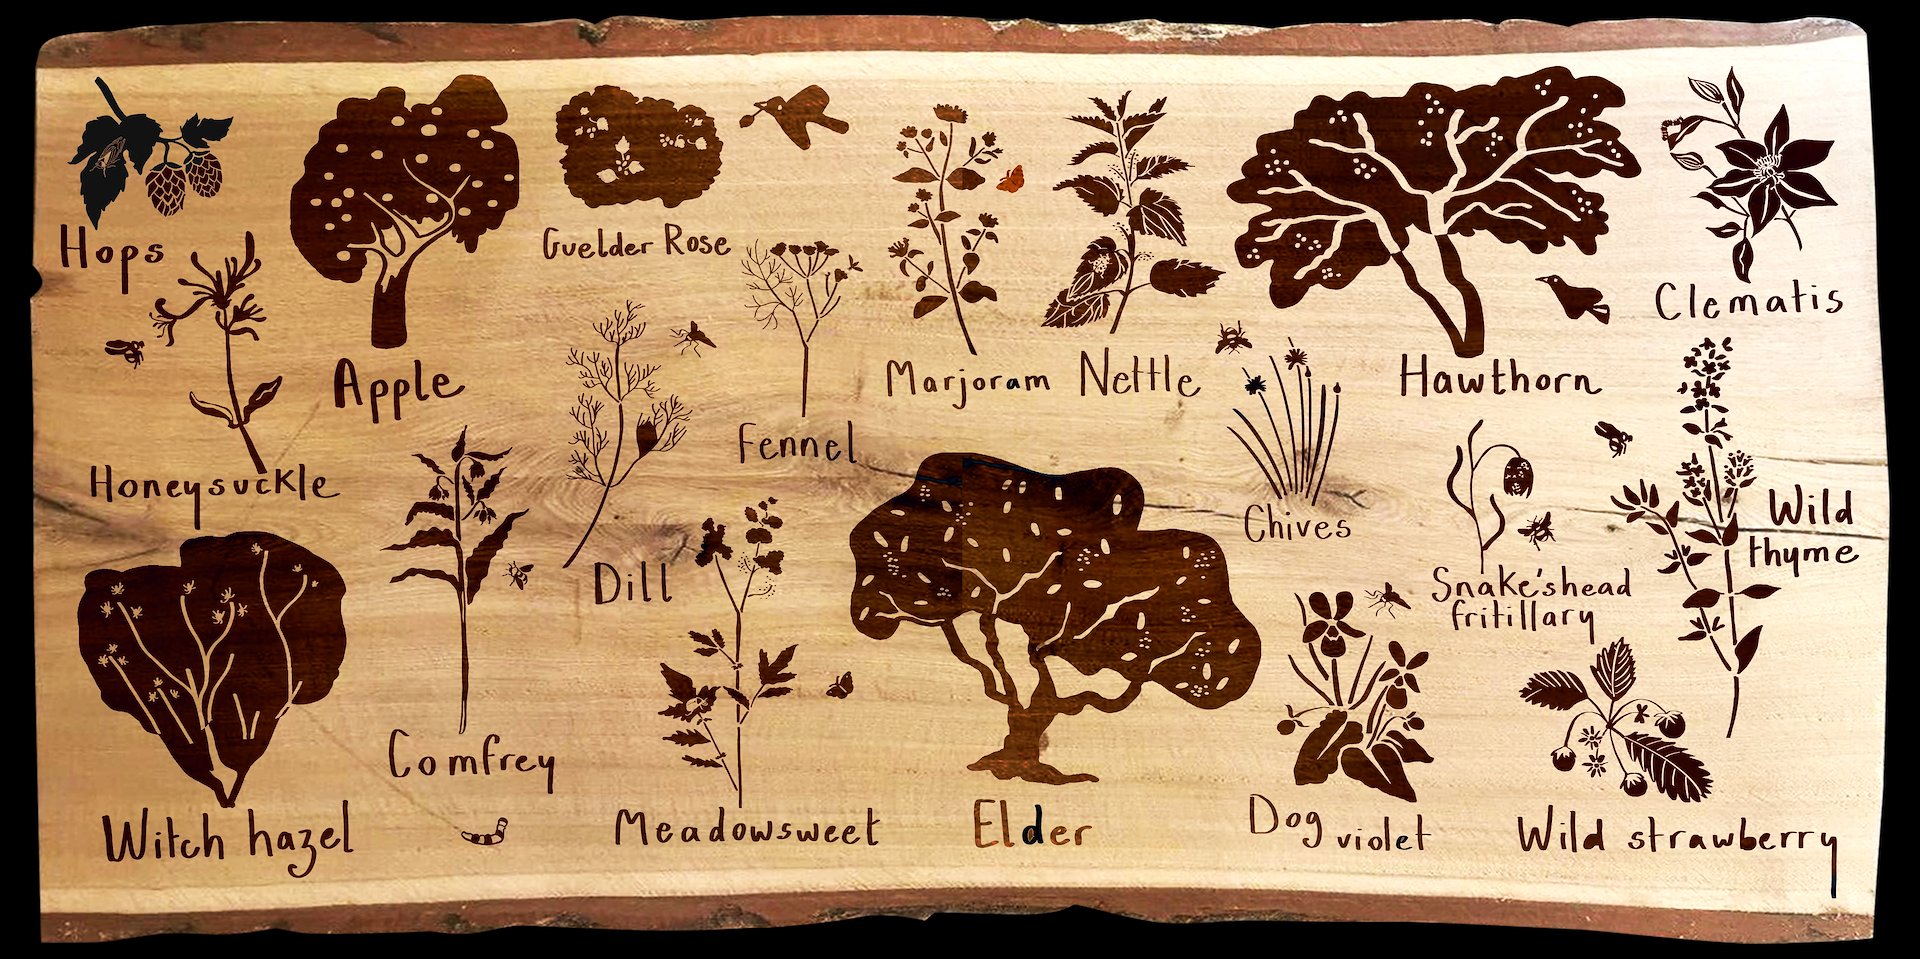 Hops
Guelder Rose
Clematis
Apple
Marjoram
Nettle
Hawthorn
Fennel
Honeysuckle
Chives
Wild
thyme
Dill
Snake'shead
fritillary
Comfrey
Witch hazel
Meadowsweet
Elder
Dog violet
Wild strawberry